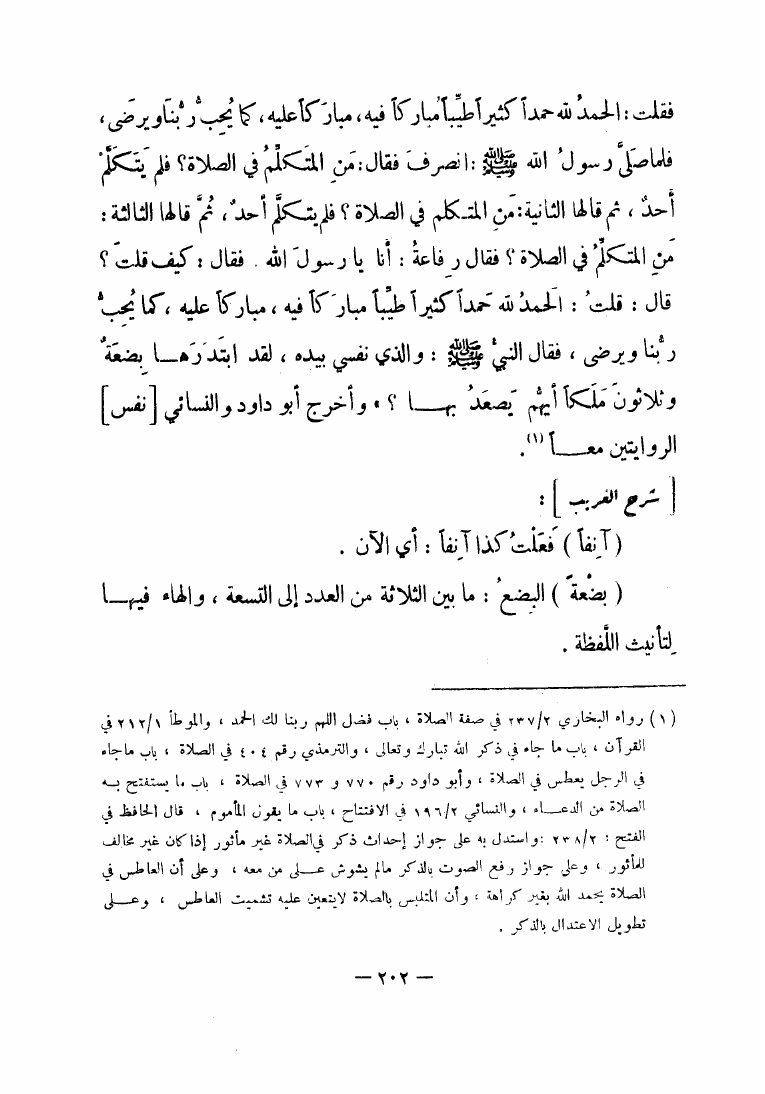 فقلت : الحمدُ لله حمداً كثيراً طيِّباً مُباركاً فيه ، مبارَكاً عليه ، كما يُحِبُّ رُّبنا ويرضى ،
فلما صلَّى رسولُ الله ﷺ : انصرفَ فقال : مَنِ المتَكلِّمُ في الصلاة ؟ فلم يَتَكَلَّمْ
أحدٌ ، ثم قالها الثانية : مَنِ المتكلم في الصلاة ؟ فلم يتكلَّم أحدٌ ، ثُمَّ قالها الثالثة :
مَنِ المتكلِّمُ في الصلاة ؟ فقال رِفاعةُ : أنا يا رسولَ الله . فقال : كيف قلتَ ؟
قال : قلتُ : الحمدُ لله حَمداً كثيراً طيِّباً مبارَكاً فيه ، مباركاً عليه ، كما يُحِبُّ
ربُّنا ويرضى ، فقال النبيُّ ﷺ : والذي نفسي بيده ، لقد ابتَدَرَهـــا بِضعَةٌ
وثلاثونَ مَلَكاً أيُّهم يَصعَدُ بهـــا ؟ » وأخرج أبو داود والنسائي [ نفس ]
الروايتين معـــاً (١).
[ شرح الغريب ] :
( آنِفاً ) فَعَلْتُ كذا آنِفاً : أي الآن .
( بِضْعةً ) البِضعُ : ما بين الثلاثة من العدد إلى التسعة ، والهاء فيهـــا
لِتأنيث اللَّفظة .
(١) رواه البخاري ٢٣٧/٢ في صفة الصلاة ، باب فضل اللهم ربنا لك الحمد ، والموطأ ٢١٢/١ في
القرآن ، باب ما جاء في ذكر الله تبارك وتعالى ، والترمذي رقم ٤٠٤ في الصلاة ، باب ماجاء
في الرجل يعطس في الصلاة ، وأبو داود رقم ٧٧٠ و ٧٧٣ في الصلاة ، باب ما يستفتح بـه
الصلاة من الدعـاء ، والنسائي ١٩٦/٢ في الافتتاح ، باب ما يقول المأموم ، قال الحافظ في
الفتح : ٢٣٨/٢ : واستدل به على جواز إحداث ذكر في الصلاة غير مأثور إذا كان غير مخالف
للمأثور ، وعلى جواز رفع الصوت بالذكر مالم يشوش عـلى من معه ، وعلى أن العاطس في
الصلاة يحمد الله بغير كراهة ، وأن المتلبس بالصلاة لايتعين عليه تشميت العاطس ، وعـلى
تطويل الاعتدال بالذكر .
— ٢٠٢ —